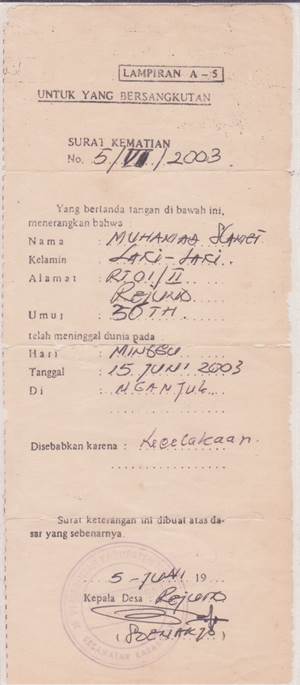 LAMPIRAN A - 5
UNTUK YANG BERSANGKUTAN
SURAT KEMATIAN
No. 5/VI/2003.
Yang bertanda tangan di bawah ini,
menerangkan bahwa :
Nama : MUHAMAD SLAMET
Kelamin : LAKI-LAKI
Alamat : RT01/II
REJUNO
Umur : 30TH.
telah meninggal dunia pada :
Hari : MINGGU
Tanggal : 15 JUNI 2003
Di : NGANJUK
Disebabkan karena : Kecelakaan.
Surat keterangan ini dibuat atas da-
sar yang sebenarnya.
5-JUNI 19...
Kepala Desa : Rejuno
KECAMATAN